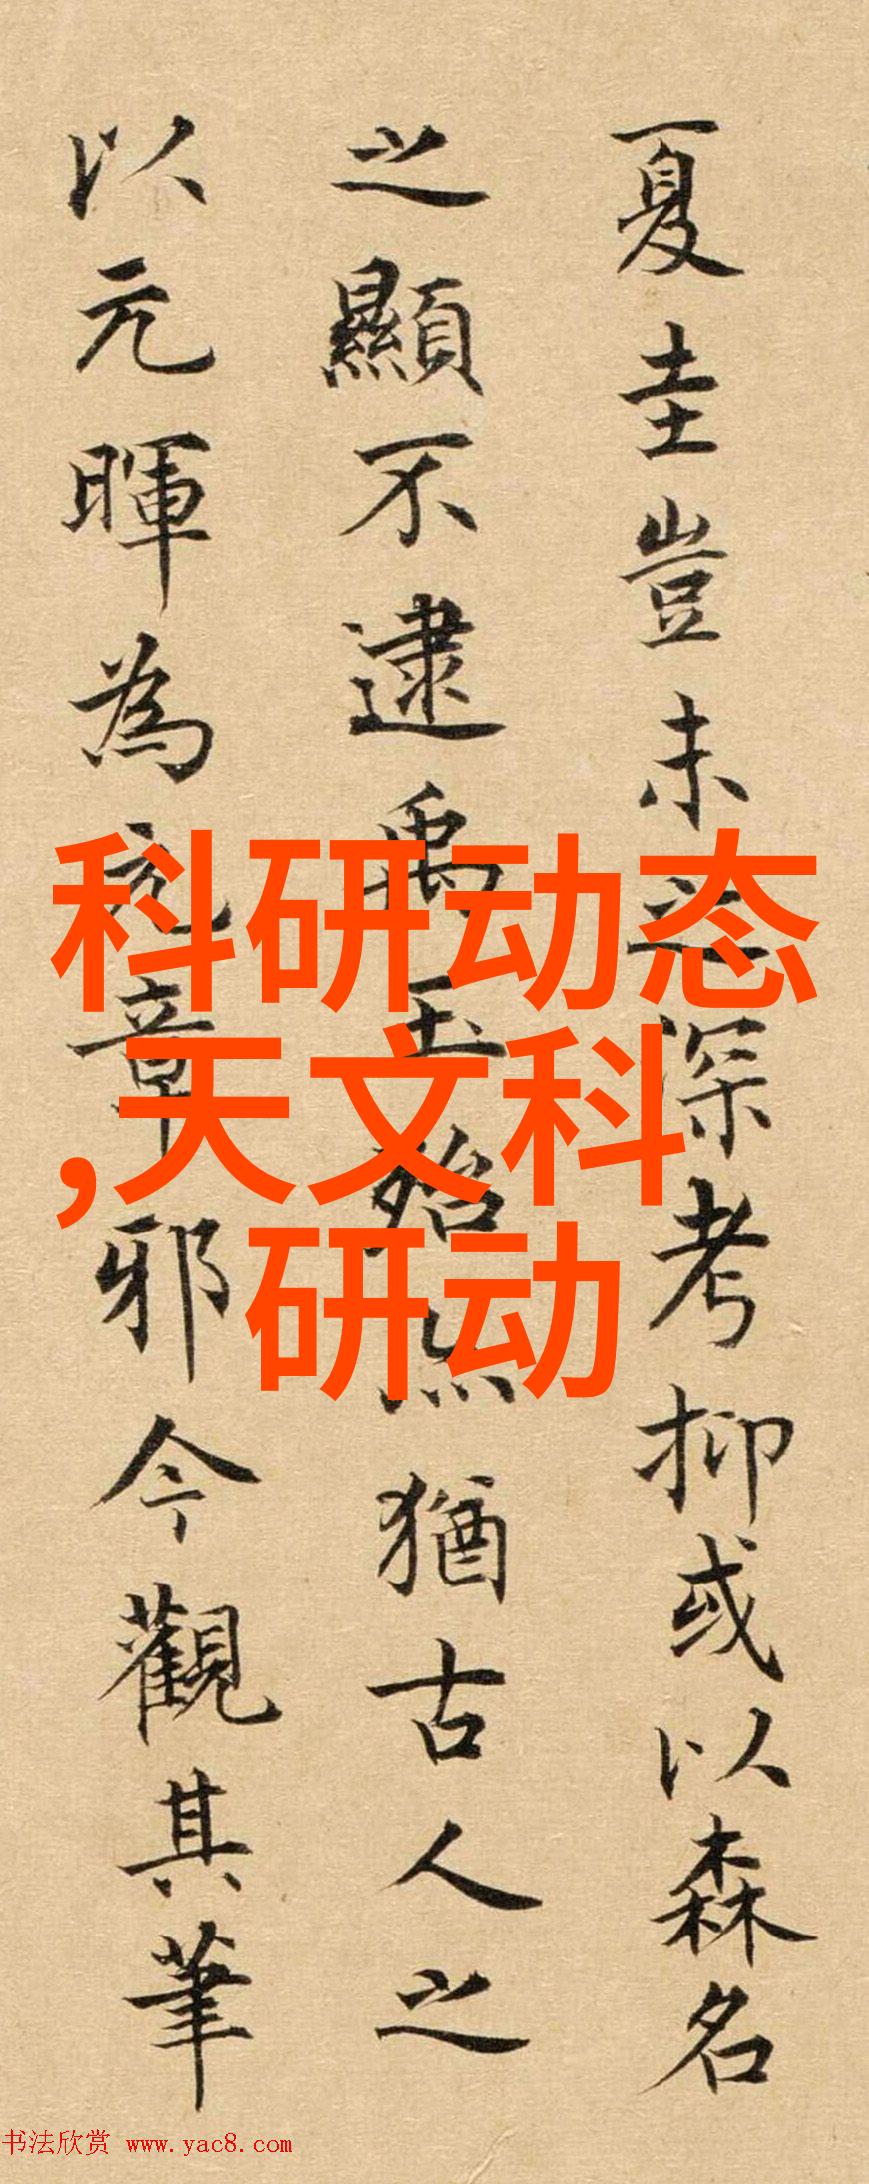 夏圭豈未之深考抑或以森名
之顯不逮禹玉殆然猶古人之
以元暉為元章邪今觀其筆
科研动态
,天文科
研动
书法欣赏 www.yac8.com